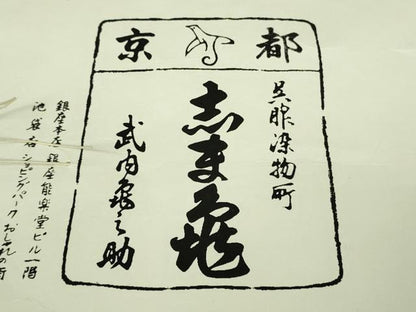 京都
呉服染物町
志ま亀
武内亀之助
銀座本店 銀座能楽堂ビル一階
池袋店 ショッピングパークおしゃれの街